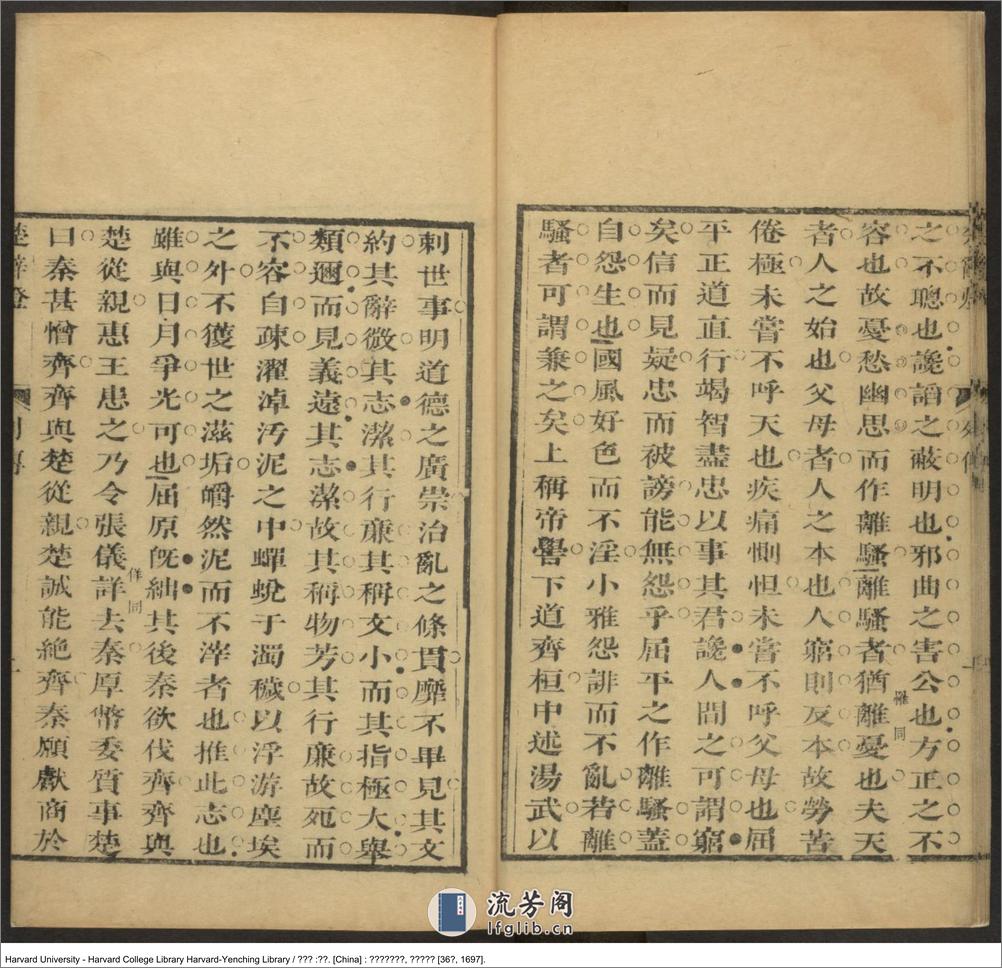 之不聰也讒諂之蔽明也邪曲之害公也方正之不
容也故憂愁幽思而作離騷離騷者猶離憂也夫天
罹同
者人之始也父母者人之本也人窮則反本故勞苦
倦極未嘗不呼天也疾痛惻怛未嘗不呼父母也屈
平正道直行竭智盡忠以事其君讒人間之可謂窮
矣信而見疑忠而被謗能無怨乎屈平之作離騷蓋
自怨生也國風好色而不淫小雅怨誹而不亂若離
騷者可謂兼之矣上稱帝嚳下道齊桓中述湯武以
刺世事明道德之廣崇治亂之條貫靡不畢見其文
約其辭微其志潔其行廉其稱文小而其指極大舉
類邇而見義遠其志潔故其稱物芳其行廉故死而
不容自疎濯淖汚泥之中蟬蛻于濁穢以浮游塵埃
之外不獲世之滋垢皭然泥而不滓者也推此志也
雖與日月爭光可也屈原旣絀其後秦欲伐齊齊與
楚從親惠王患之乃令張儀詳去秦厚幣委質事楚
佯同
曰秦甚憎齊齊與楚從親楚誠能絕齊秦願獻商於
楚辭燈
流芳阁
lfglib.cn
Harvard University - Harvard College Library Harvard-Yenching Library / ??? :??. [China] : ???????, ????? [36?, 1697].